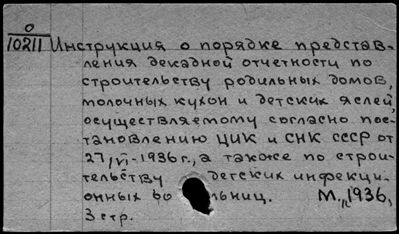 О
10211 Инструкция о порядке представ-
ления декадной отчетности по
строительству родильных домов,
молочных кухон и детских яслей,
осуществляемому согласно пос-
тановлению ЦИК и СНК СССР от
27/VI-1936г., а также по строи-
тельству детских инфекци-
онных бо льниц. М., 1936,
3 стр.